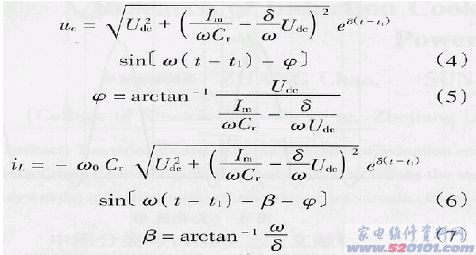 u_c = √(U_dc² + (I_m/(ωC_r) − (δ/ω)U_dc)²) e^{δ(t−t₁)}
sin[ω(t − t₁) − φ] (4)
φ = arctan⁻¹ U_dc/(I_m/(ωC_r) − δ/(ωU_dc)) (5)
i_L = − ω₀ C_r √(U_dc² + (I_m/(ωC_r) − (δ/ω)U_dc)²) e^{δ(t−t₁)}
sin[ω(t − t₁) − β − φ] (6)
β = arctan⁻¹ ω/δ (7)
家电维修资料网
www.520101.com